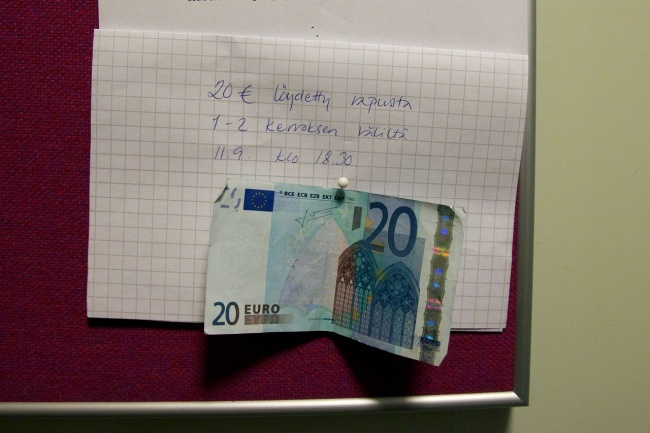 20 € löydetty rapusta
1-2 kerroksen väliltä
11.9. klo 18.30
BCE ECB EZB EKT EKP
20
20 EURO
ΕΥΡΩ